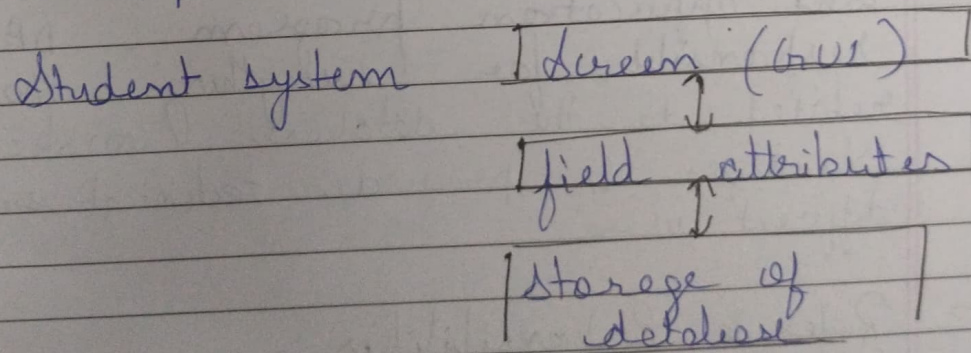 Student system Screen (GUI)
field attributes
storage of
database